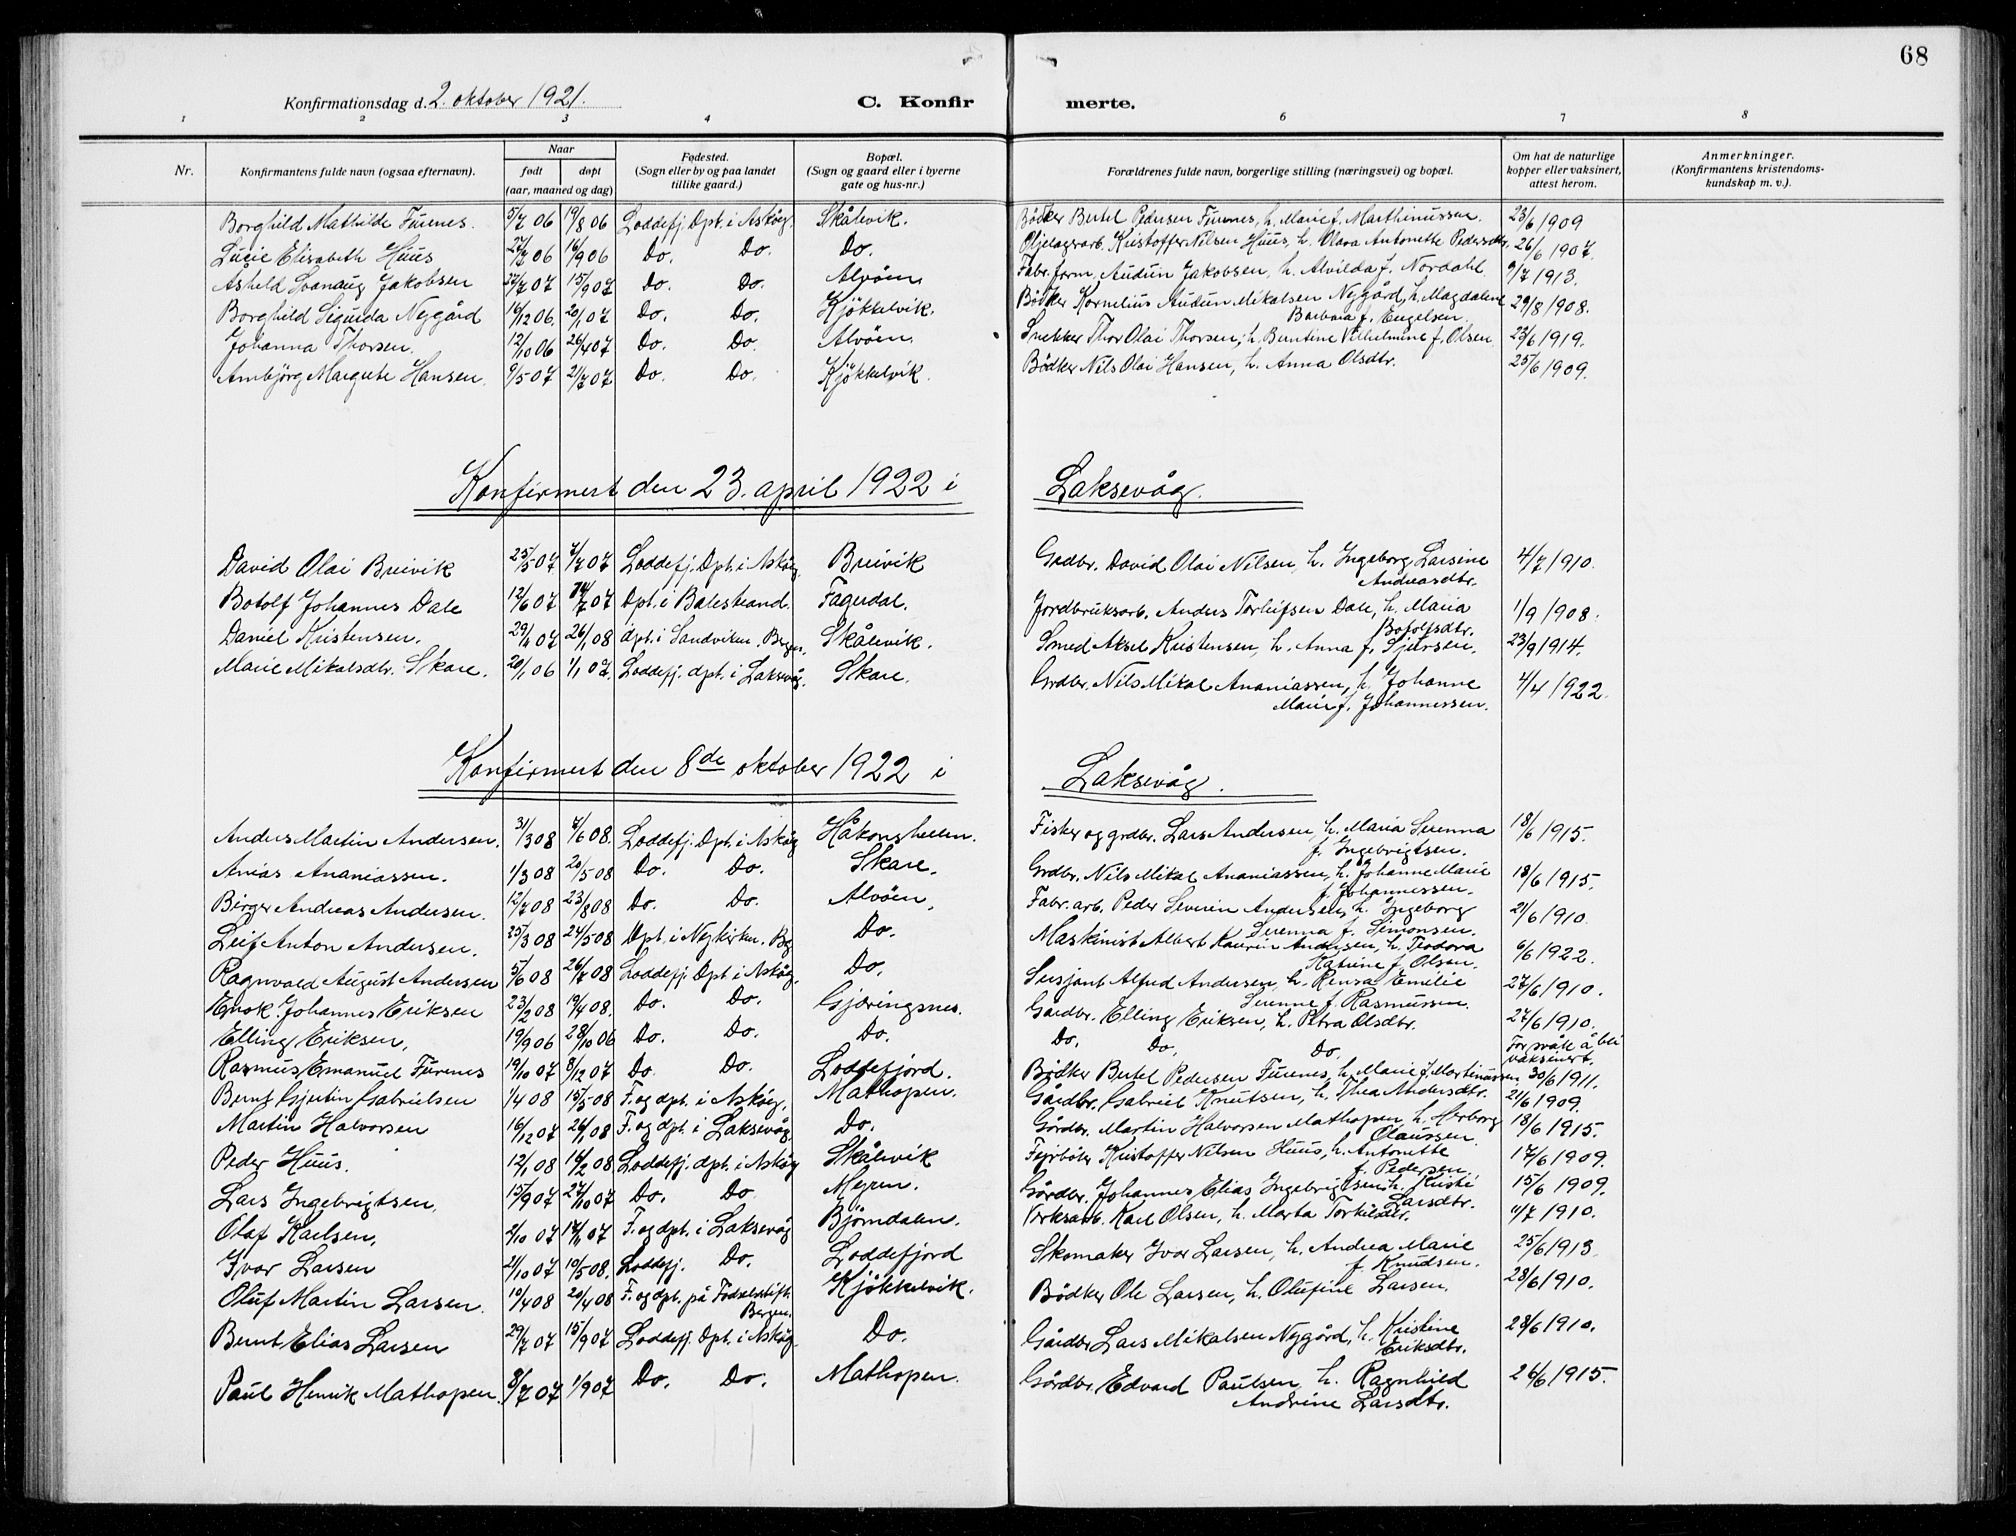 68
Konfirmationsdag d. 2. oktober 1921.
C. Konfirmerte.
1 2 3 4 6 7 8
Nr.
Konfirmantens fulde navn (ogsaa efternavn).
Naar
født døpt
(aar, maaned og dag)
Fødested.
(Sogn eller by og paa landet tillike gaard.)
Bopæl.
(Sogn og gaard eller i byerne gate og hus-nr.)
Forældrenes fulde navn, borgerlige stilling (næringsvei) og bopæl.
Om hat de naturlige kopper eller vaksinert, attest herom.
Anmerkninger.
(Konfirmantens kristendomskundskap m. v.).
Borghild Mathilde Furenes. 5/7 06 19/8 06 Loddefj. Dpt. i Askög. Skålevik. Bödker Bertel Pedersen Furenes, h. Marie f. Marthinussen. 23/6 1909
Lucie Elisabeth Huus 27/7 06 16/9 06 Do. Do. Do. Oljelagerarb. Kristoffer Nilsen Huus, h. Olava Antonette Pedersdtr. 26/6 1907.
Åshild Svanaug Jakobsen 27/7 07 15/9 07 Do. Do. Alvöen Fabr. form. Audun Jakobsen, h. Alvilda f. Nordahl. 9/7 1913.
Borghild Sigurda Nygård 16/12 06. 20/1 07 Do. Do. Kjökkelvik. Bödker Kornelius Audun Mikalsen Nygård, h. Magdalene Barbara f. Engelsen. 29/8 1908.
Johanna Thorsen. 12/10 06 26/4 07 Do. Do. Alvöen. Snekker Thor Olai Thorsen, h. Berntine Vilhelmine f. Olsen. 23/6 1919.
Arnbjörg Margrete Hansen. 9/5 07 21/7 07 Do. Do. Kjökkelvik. Bödker Nils Olai Hansen, h. Anna Olsdtr. 25/6 1909.
Konfirmert den 23. april 1922 i Laksevåg.
David Olai Breivik 25/5 07 7/7 07 Loddefj. Dpt. i Askög. Breivik Grdbr. David Olai Nilsen, h. Ingeborg Larsine Andreasdtr. 4/7 1910.
Botolf Johannes Dale 12/6 07 14/7 07 Dpt. i Balestrand. Fagerdal. Jordbruksarb. Anders Torleifsen Dale, h. Maria Botolfsdtr. 1/9 1908.
Daniel Kristensen. 29/ 07 26/1 08 dpt. i Sandviken. Bergen. Skålevik. Smed Aksel Kristensen, h. Anna f. Sjursen. 23/9 1914.
Marie Mikalsdtr. Skare. 20/1 06 1/1 07. Loddefj. dpt. i Laksevåg. Skare. Grdbr. Nils Mikal Ananiassen, h. Johanne Marie f. Johannessen. 4/4 1922.
Konfirmert den 8de oktober 1922 i Laksevåg.
Anders Martin Andersen. 31/3 08 7/6 08. Loddefj. Dpt. i Askög Håkonshellen. Fisker og grdbr. Lars Andersen, h. Maria Serenna f. Ingebrigtsen. 18/6 1915.
Anias Ananiassen. 1/3 08 20/5 08 Do. Do. Skare. Grdbr. Nils Mikal Ananiassen, h. Johanne Marie f. Johannessen. 18/6 1915.
Birger Andreas Andersen. 12/7 08 23/8 08 Do. Do. Alvöen. Fabr. arb. Peder Severin Andersen, h. Ingeborg Serenna f. Simonsen. 21/6 1910.
Leif Anton Andersen. 25/3 08 24/5 08 Dpt. i Nykirken. Bg. Do. Maskinist Albert Kaurin Andersen, h. Teodora Katrine f. Olsen. 6/6 1922.
Ragnvald August Andersen 5/6 08 26/7 08 Loddefj. Dpt. i Askög. Do. Sersjant Alfred Andersen, h. Rensa Emilie Serenne f. Rasmussen. 27/6 1910.
Enok Johannes Eriksen 23/2 08 19/4 08. Do. Do. Gjæringsnes. Gårdbr. Elling Eriksen, h. Petra Olsdtr. 27/6 1910.
Elling Eriksen. 19/9 06 28/10 06 Do. Do. Do. Do. Do. Do. For svak å bli vaksinert.
Rasmus Emanuel Furenes 19/10 07 8/12 07 Do. Do. Loddefjord. Bödker Bertel Pedersen Furenes, h. Marie f. Martinussen. 30/6 1911.
Bernt Gjertin Gabrielsen /4 08 15/5 08 F. og dpt. i Askög. Mathopen. Gårdbr. Gabriel Knutsen, h. Thea Andersdtr. 21/6 1909.
Martin Halvorsen 16/12 07 26/1 08 F. og dpt. i Laksevåg. Do. Gårdbr. Martin Halvorsen Mathopen, h. Herborg Olaussen. 18/6 1915.
Peder Huus. 12/1 08 14/2 08 Loddefj. dpt. i Askög Skålevik Fyrböter Kristoffer Nilsen Huus, h. Antonette f. Pedersen. 17/6 1909.
Lars Ingebrigtsen. 15/9 07 27/10 07 Do. Do. Myren. Gårdbr. Johannes Elias Ingebrigtsen, h. Kristi Larsdtr. 15/6 1909.
Olaf Karlsen. 2/10 07 14/ 07 F. og dpt. i Laksevåg Björndalen. Verksarb. Karl Olsen, h. Marta Torkilsdtr. 11/7 1910.
Ivar Larsen 21/10 07 10/5 08. Loddefj. Do. Loddefjord Skomaker Ivar Larsen, h. Andrea Marie f. Knudsen. 25/6 1913.
Oluf Martin Larsen. 19/4 08 20/4 08 F. og dpt. på Fødselsstift. Bergen. Kjökkelvik. Bödker Ole Larsen, h. Olufine Larsen. 28/6 1910.
Bernt Elias Larsen 29/7 07 15/9 07 Loddefj. Dpt. i Askög. Do. Gårdbr Lars Mikalsen Nygård, h. Kristine Eriksdtr. 28/6 1910.
Paul Henrik Mathopen. 8/7 07 1/9 07 Do. Do. Mathopen. Gårdbr. Edvard Paulsen h. Ragnhild Andrine Larsdtr. 26/6 1915.